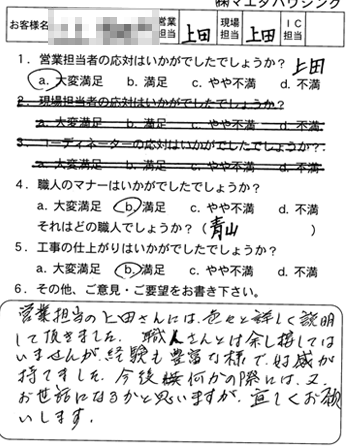 ㈱マエダハウジング
お客様名 営業担当 上田 現場担当 上田 IC担当
1. 営業担当者の応対はいかがでしたでしょうか? 上田
a. 大変満足 b. 満足 c. やや不満 d. 不満
2. 現場担当者の応対はいかがでしたでしょうか?
a. 大変満足 b. 満足 c. やや不満 d. 不満
3. コーディネーターの応対はいかがでしたでしょうか?
a. 大変満足 b. 満足 c. やや不満 d. 不満
4. 職人のマナーはいかがでしたでしょうか?
a. 大変満足 b. 満足 c. やや不満 d. 不満
それはどの職人でしょうか?(青山 )
5. 工事の仕上がりはいかがでしたでしょうか?
a. 大変満足 b. 満足 c. やや不満 d. 不満
6. その他、ご意見・ご要望をお書き下さい。
営業担当の上田さんには、色々と詳しく説明
して頂きました。職人さんとは余し接しては
いませんが、経験も豊富な様で、好感が
持てました。今後何かの際には、又、
お世話になるかと思いますが、宜しくお願
いします。